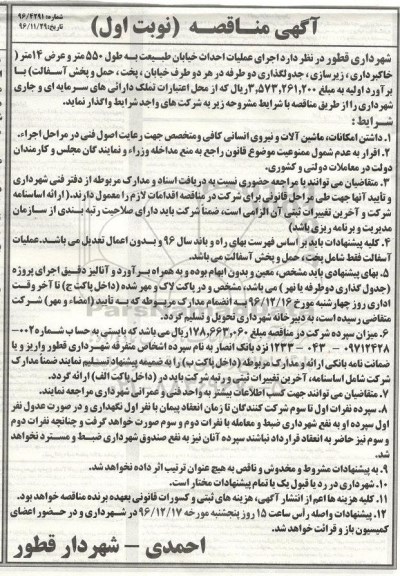 شماره: ۹۶/۴۲۹۱
تاریخ: ۹۶/۱۱/۲۹
آگهی مناقصه (نوبت اول)
شهرداری قطور در نظر دارد اجرای عملیات احداث خیابان طبیعت به طول ۵۵۰ متر و عرض ۱۴ متر (
خاکبرداری، زیرسازی، جدولگذاری دو طرفه در هر دو طرف خیابان، پخت، حمل و پخش آسفالت) با
برآورد اولیه به مبلغ ۳,۵۷۳,۲۶۱,۲۰۰ ریال که از محل اعتبارات تملک دارائی های سرمایه ای و جاری
شهرداری را از طریق مناقصه با شرایط مشروحه زیر به شرکت های واجد شرایط واگذار نماید.
شرایط:
۱. داشتن امکانات، ماشین آلات و نیروی انسانی کافی و متخصص جهت رعایت اصول فنی در مراحل اجراء.
۲. اقرار به عدم شمول ممنوعیت موضوع قانون راجع به منع مداخله وزراء و نمایندگان مجلس و کارمندان
دولت در معاملات دولتی و کشوری.
۳. متقاضیان می توانند با مراجع حضوری نسبت به دریافت اسناد و مدارک مربوطه از دفتر فنی شهرداری
و تایید آنها جهت طی مراحل قانونی برای شرکت در مناقصه اقدامات لازم را معمول دارند.( ارائه اساسنامه
شرکت و آخرین تغییرات ثبتی آن الزامی است، ضمناً شرکت باید دارای صلاحیت رتبه بندی از سازمان
مدیریت و برنامه ریزی باشد)
۴. کلیه پیشنهادات باید بر اساس فهرست بهای راه و باند سال ۹۶ و بدون اعمال تعدیل می باشد. عملیات
آسفالت فقط شامل پخت، حمل و پخش آسفالت می باشد.
۵. بهای پیشنهادی باید مشخص، معین و بدون ابهام بوده و به همراه برآورد و آنالیز دقیق اجرای پروژه
(جدول گذاری دوطرفه یا نهر) می باشد، مشخص و در پاکت لاک و مهر شده (داخل پاکت ج) تا آخر وقت
اداری روز چهارشنبه مورخ ۹۶/۱۲/۱۶ به انضمام مدارک مربوطه که به تایید (امضاء و مهر) شرکت
متقاضی رسیده است، به دبیرخانه شهرداری تحویل و تسلیم گردد.
۶. میزان سپرده شرکت در مناقصه مبلغ ۱۷۸,۶۶۳,۰۶۰ ریال می باشد که بایستی به حساب شماره ۰۰۲-
۹۷۱۲۴۲۸ - ۰۴۳ - ۱۲۳۳ نزد بانک انصار به نام سپرده اشخاص متفرقه شهرداری قطور واریز و یا
ضمانت نامه بانکی ارائه و مدارک مربوطه (داخل پاکت ب) را به ضمیمه پیشنهاد تسلیم نمایند ضمناً مدارک
شرکت شامل اساسنامه، آخرین تغییرات ثبتی و رتبه شرکت باید در (داخل پاکت الف) ارائه گردد.
۷. متقاضیان می توانند جهت کسب اطلاعات بیشتر به واحد فنی و عمرانی شهرداری مراجعه نمایند.
۸. سپرده نفرات اول تا سوم شرکت کنندگان تا زمان انعقاد پیمان با نفر اول نگهداری و در صورت عدول نفر
اول سپرده او به نفع شهرداری ضبط و معامله با نفرات دوم و سوم صورت خواهد گرفت و چنانچه نفرات دوم
و سوم نیز حاضر به انعقاد قرارداد نباشند سپرده آنان نیز به نفع صندوق شهرداری ضبط و مسترد نخواهد
شد.
۹. به پیشنهادات مشروط و مخدوش و ناقص به هیچ عنوان ترتیب اثر داده نخواهد شد.
۱۰. شهرداری در رد یا قبول یک یا تمام پیشنهادات مختار است.
۱۱. کلیه هزینه ها اعم از انتشار آگهی، هزینه های ثبتی و کسورات قانونی بعهده برنده مناقصه خواهد بود.
۱۲. پیشنهادات واصله رأس ساعت ۱۵ روز پنجشنبه مورخه ۹۶/۱۲/۱۷ در شهرداری و در حضور اعضای
کمیسیون باز و قرائت خواهد شد.
احمدی - شهردار قطور